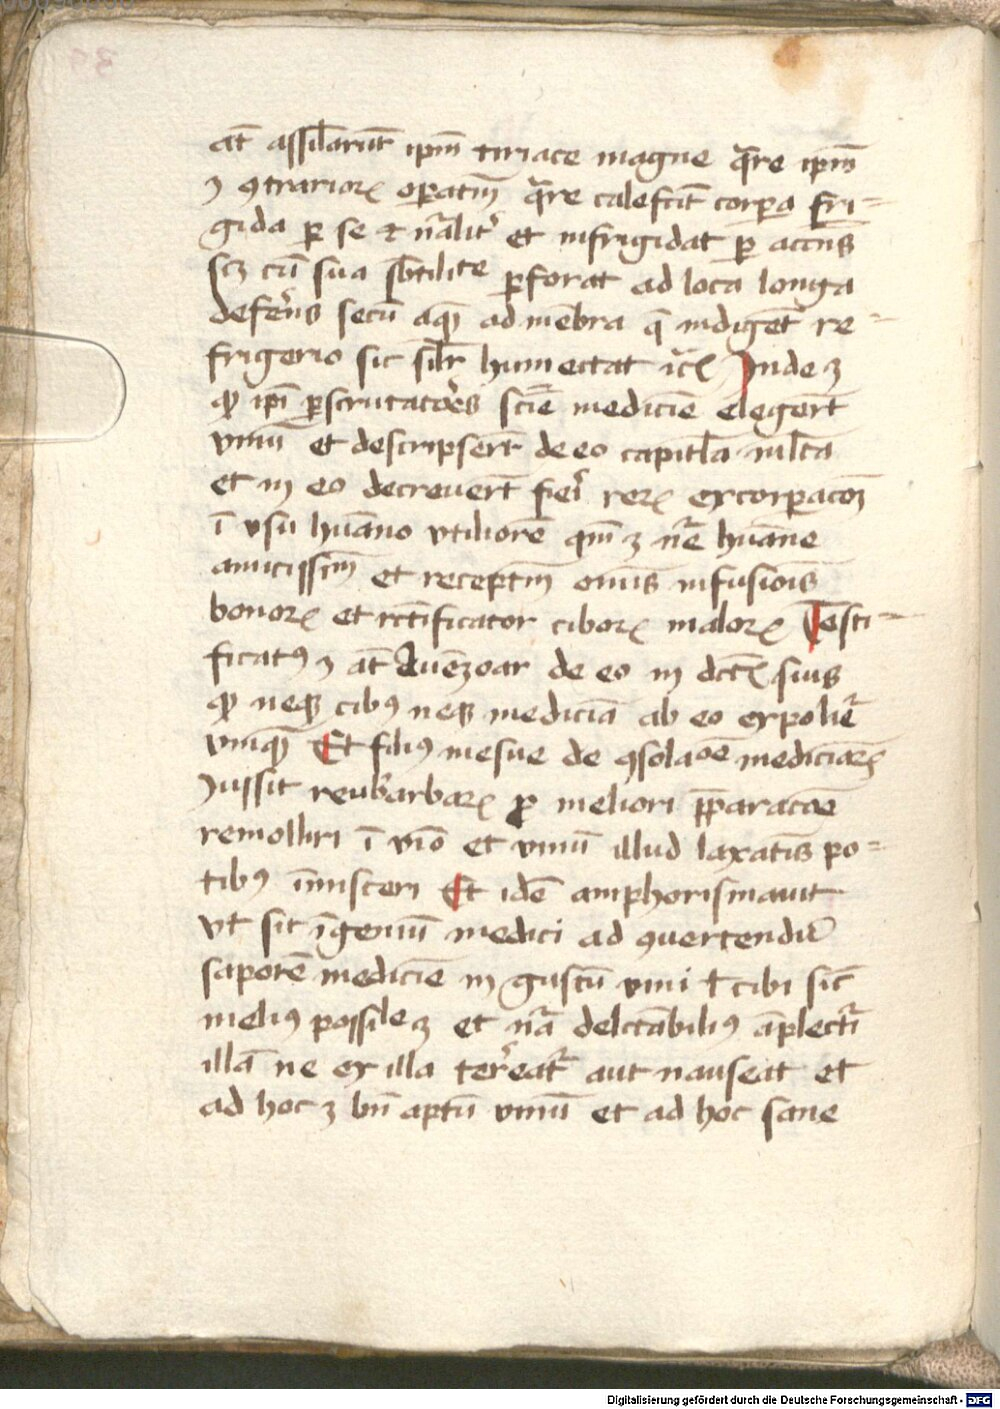 at̄ assil̄arūt ip̄m tiriace magne q̄re ip̄m
ꝫ ꝯtrarioꝝ oꝑatīn q̄re calefcīt corpa fri=
gida ꝑ se ⁊ nāliť et infrigidat ꝑ accn̄s
scꝫ cū sua sb̄tilitᵉ ꝑforat ad loca longa
deferēs secū aqꝫ ad mēbra q̄ indigēt re=
frigerio sic sil̄r humectat ⁊c̄ Inde ꝫ
ꝙ ip̄i ꝑscrutatōres scīe medicīe elegert̄
vinū et descripsert̄ de eo capitl̄a ml̄ta
et in eo decrevert̄ fieri reꝝ excorꝑacōꝫ
ī vsu hūano vtiliorē qm̄ ꝫ nr̄e hūane
amicissīm et receptīm oīnis infusiōis
bonoꝝ et rct̄ificator ciboꝝ maloꝝ Testi=
ficatꝰ ꝫ at̄ Auēzoar de eo in dct̄ꝭ suis
ꝙ neqꝫ cibꝰ neqꝫ medicīa ab eo expolieť
vniqꝫ Et filiꝰ mesue de ꝯsolaᵒē medicīaꝝ
Jussit reubarbaꝝ ꝓ meliori p̄paracōe
remolliri ī vīo et vinū illud laxatīs po=
tibꝰ īmisceri Et idē amphorismauit
vt sit īgeniū medici ad ꝯuertendū
saporē medicīe in gustū vini ł cibi sic̄
meliꝰ possile ꝫ et nr̄a delctābiliꝰ āplectiť
illā ne ex illa terreať aut nauseat et
ad hoc ꝫ bn̄ aptū vinū et ad hoc sane
Digitalisierung gefördert durch die Deutsche Forschungsgemeinschaft - DFG